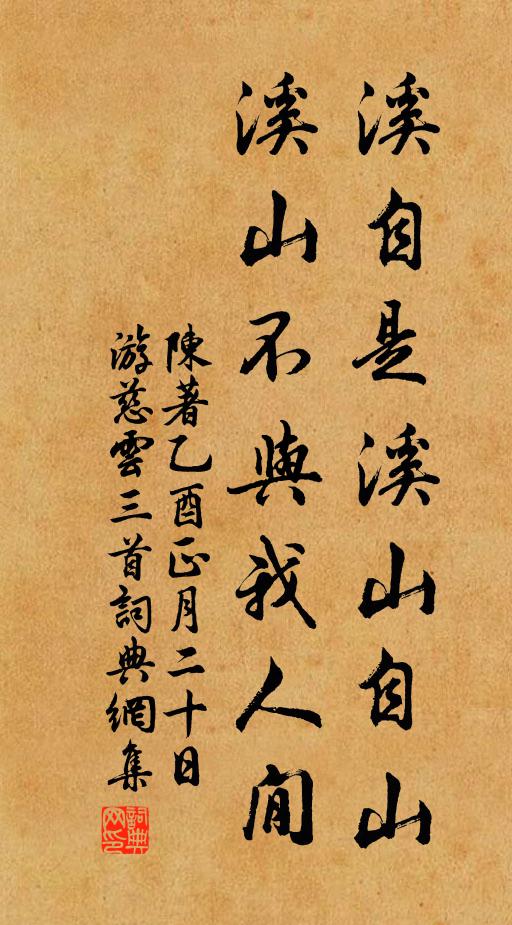 溪自是溪山自山
溪山不與我人間
陳著乙酉正月二十日
游慈雲三首詞典網集
詞典网印